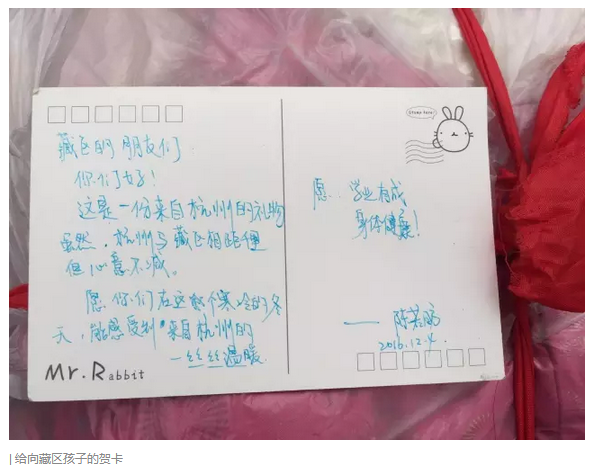 藏区的朋友们
你们好!
这是一份来自杭州的礼物
虽然,杭州与藏区相距
但心意不减。
愿你们在这个寒冷的冬
天,能感受到来自杭州的
一丝丝温暖
Mr. Rabbit
愿:学业有成
身体健康!
2016.12.4
| 给向藏区孩子的贺卡